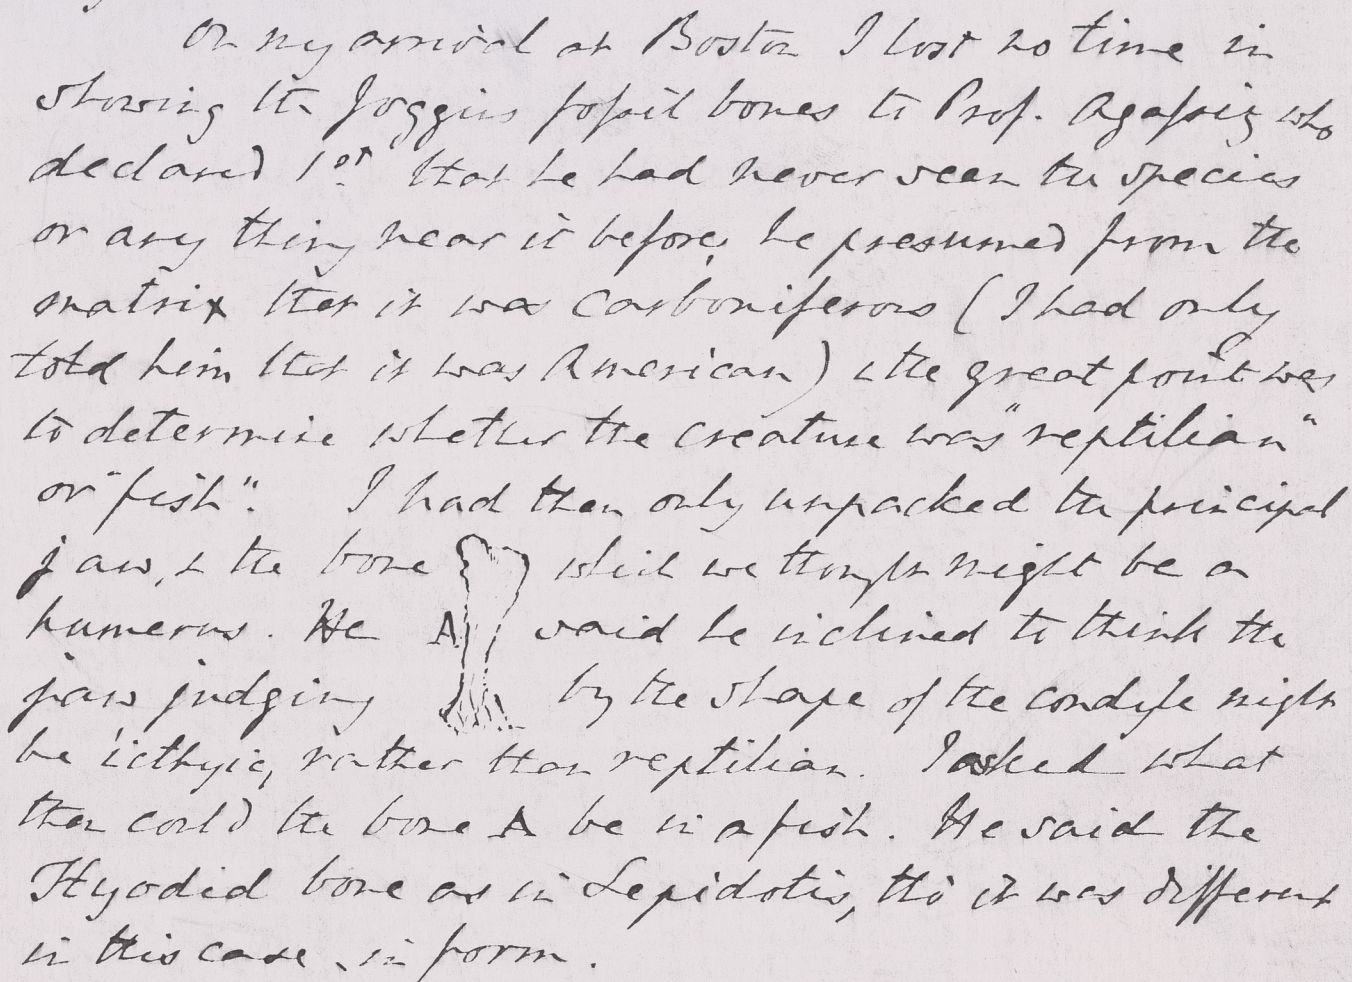 On my arrival at Boston I lost no time in
showing the Joggins fossil bones to Prof. Agassiz who
declared 1st. that he had never seen the species
or any thing near it before, he presumed from the
matrix that it was Carboniferous (I had only
told him that it was American) & the great point was
to determine whether the creature was "reptilian"
or "fish". I had then only unpacked the principal
jaw, & the bone which we thought might be a
humerus. He A said he inclined to think the
jaw judging by the shape of the condyle might
be icthyic, rather than reptilian. I asked what
then could the bone A be in a fish. He said the
Hyodid bone as in Lepidotis, tho' it was different
in this case, in form.